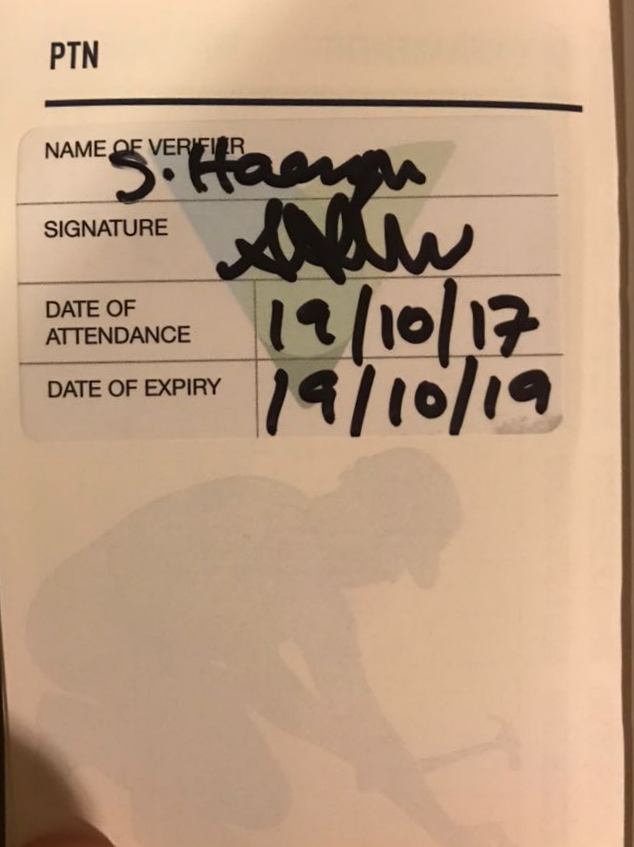 PTN
NAME OF VERIFIER
S.
SIGNATURE
DATE OF
ATTENDANCE
19/10/17
DATE OF EXPIRY
19/10/19